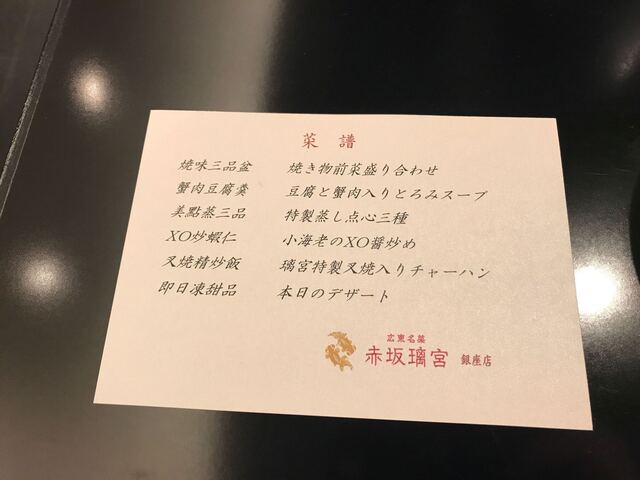 菜譜
焼味三品盆 焼き物前菜盛り合わせ
蟹肉豆腐羹 豆腐と蟹肉入りとろみスープ
美點蒸三品 特製蒸し点心三種
XO炒蝦仁 小海老のXO醤炒め
叉焼精炒飯 璃宮特製叉焼入りチャーハン
即日凍甜品 本日のデザート
広東名菜
赤坂璃宮 銀座店